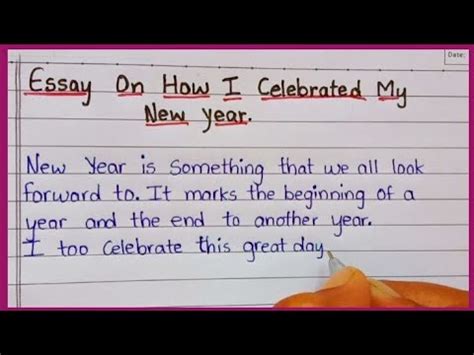 Date:
Essay On How I Celebrated My
New Year.
New Year is something that we all look
forward to. It marks the beginning of a
year and the end to another year.
I too celebrate this great day